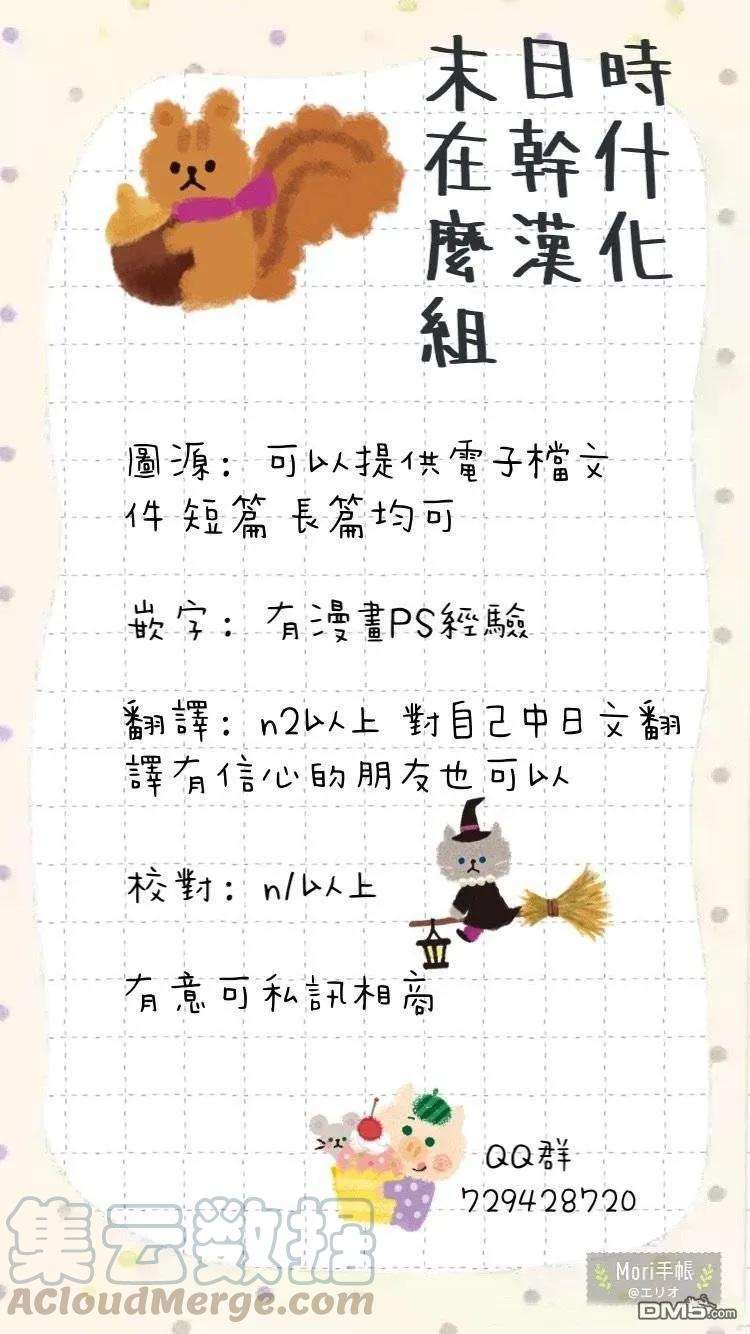 末日時
在幹什
麼漢化
組
圖源：可以提供電子檔文
件 短篇 長篇均可
嵌字：有漫畫PS經驗
翻譯：n2以上 對自己中日文翻
譯有信心的朋友也可以
校對：n1以上
有意可私訊相商
QQ群
729428720
集云数据
ACloudMerge.com
Mori手帳
@エリオ
DM5.com